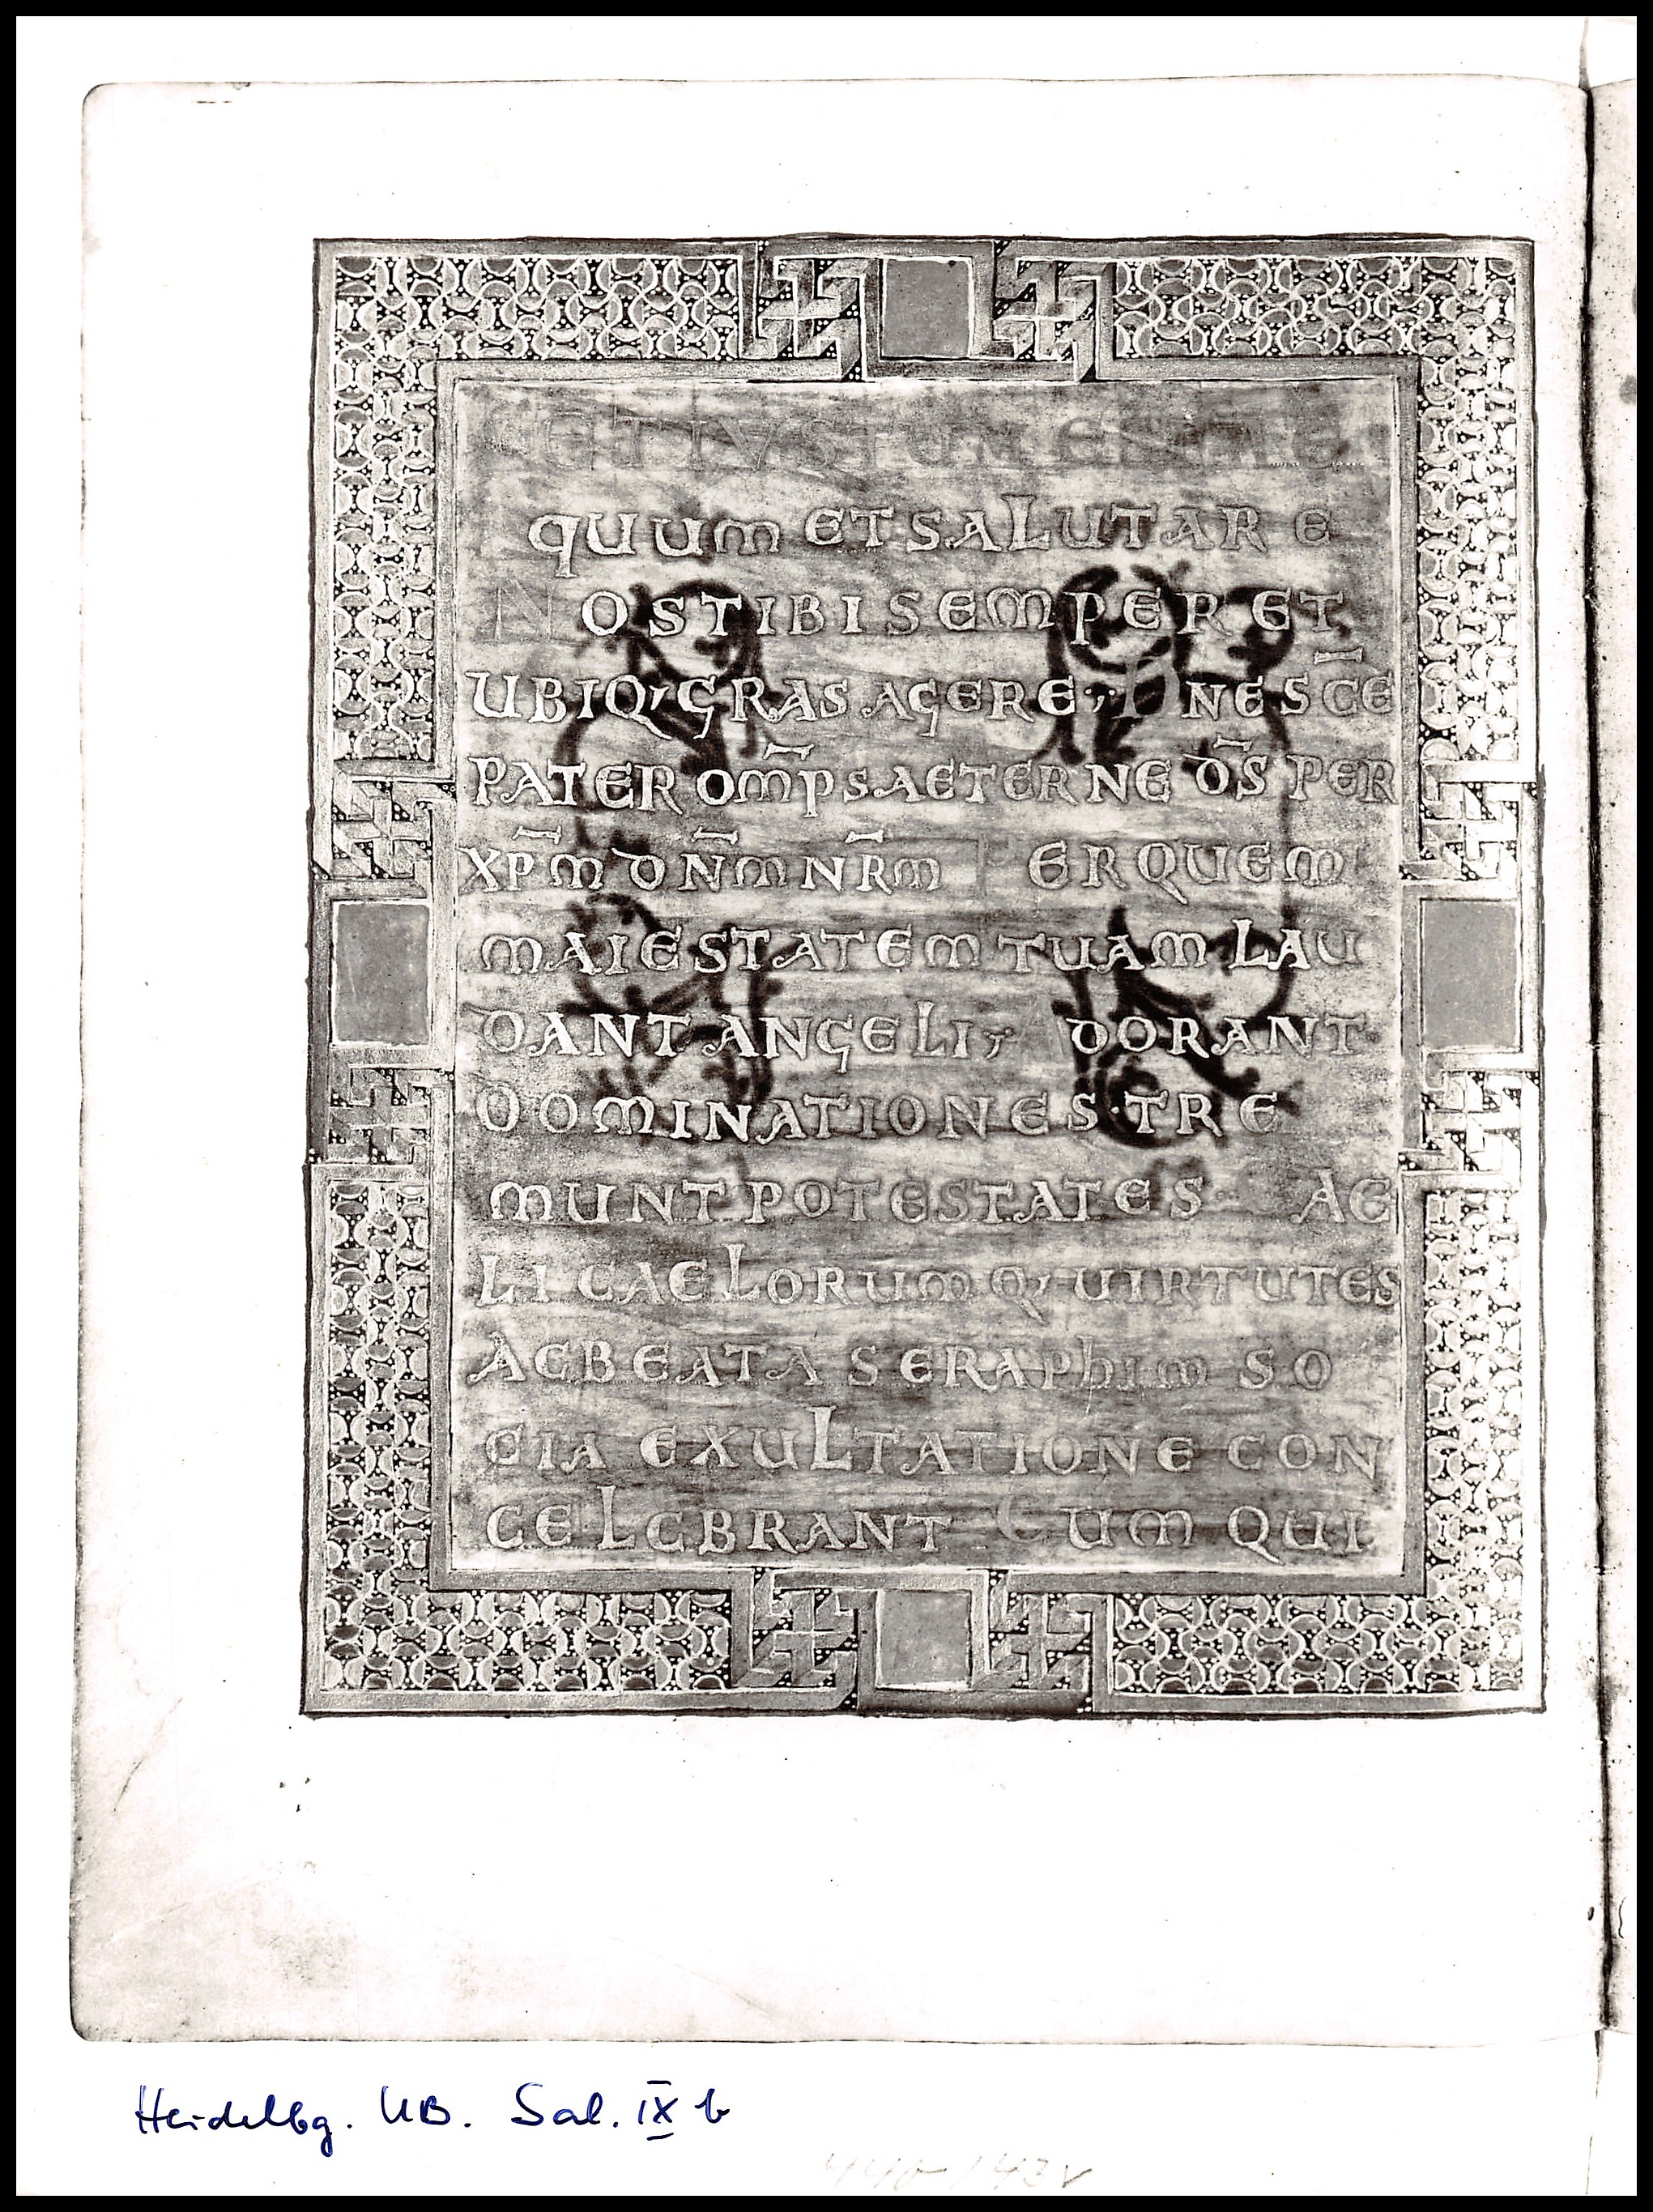 ET IUSTUM EST AE
QUUM ET SALUTARE
NOS TIBI SEMPER ET
UBIQ; GRAS AGERE; DNE SCE
PATER OMPS AETERNE DS PER
XPM DNM NRM PER QUEM
MAIESTATEM TUAM LAU
DANT ANGELI; ADORANT
DOMINATIONES· TRE
MUNT POTESTATES CAE
LI CAELORUMQ; UIRTUTES
AC BEATA SERAPHIM SO
CIA EXULTATIONE CON
CELEBRANT CUM QUI
Heidelbg. UB. Sal. IX b